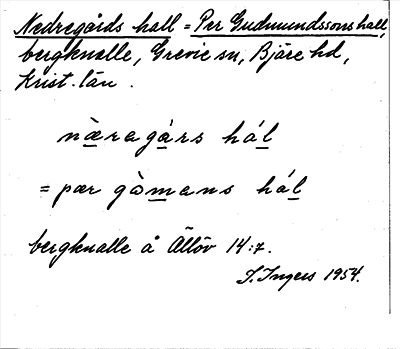 Nedregårds hall = Per Gudmundssons hall,
bergknalle, Grevie sn, Bjäre hd,
Krist. län.
næragárs hál
= pær gòmans hál
bergknalle å Ällöv 14:7.
I. Ingers 1954.